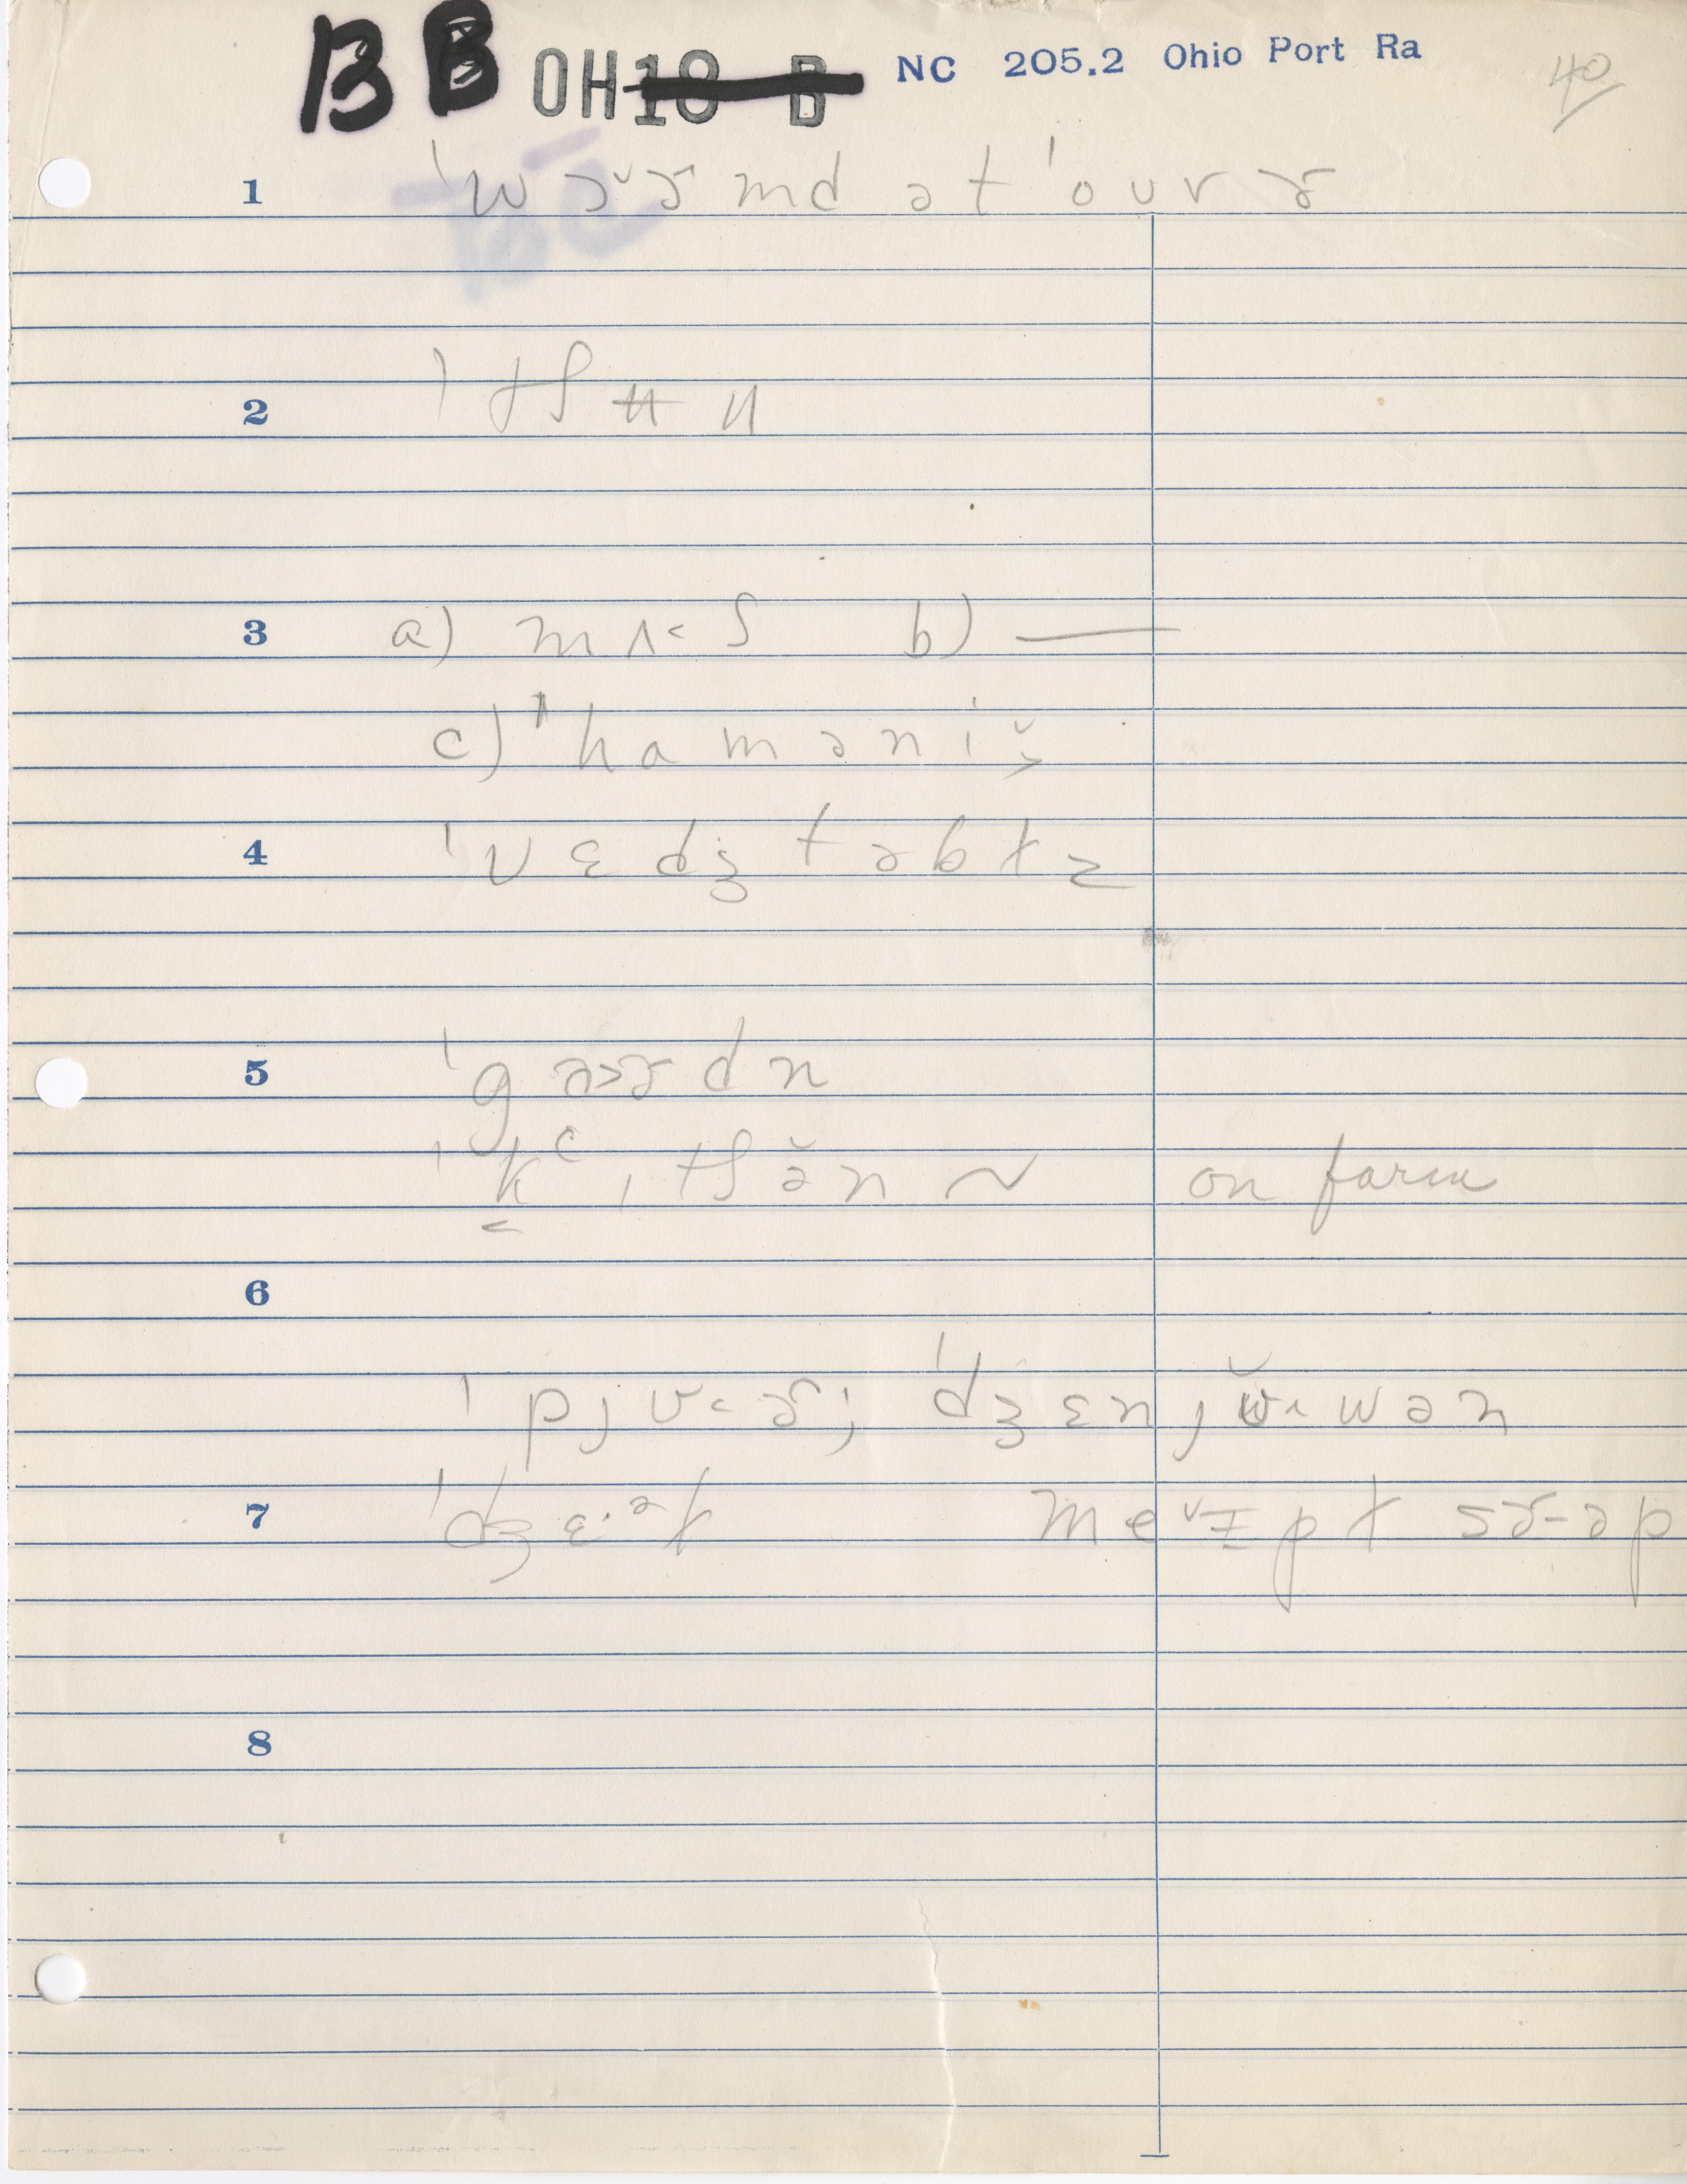 BB OH NC 205.2 Ohio Port Ra 40
1 ˈwɔ˞ɚmd ətˈoʊvɚ
2
3 a) mʌ˂ʃ b) —
c) ˈhaməniˇ˃
4 ˈvɛdʒtəbɫz
5 ˈgɑ˃ɚdn
ˈkʿɪtʃə̆n ~ on farm
6
ˈpjʊ˂ɚ; ˈdʒɛnjʊ̆^wən
7 ˈdʒɛ·əɫ meˇɪpɫ sɚ-əp
8